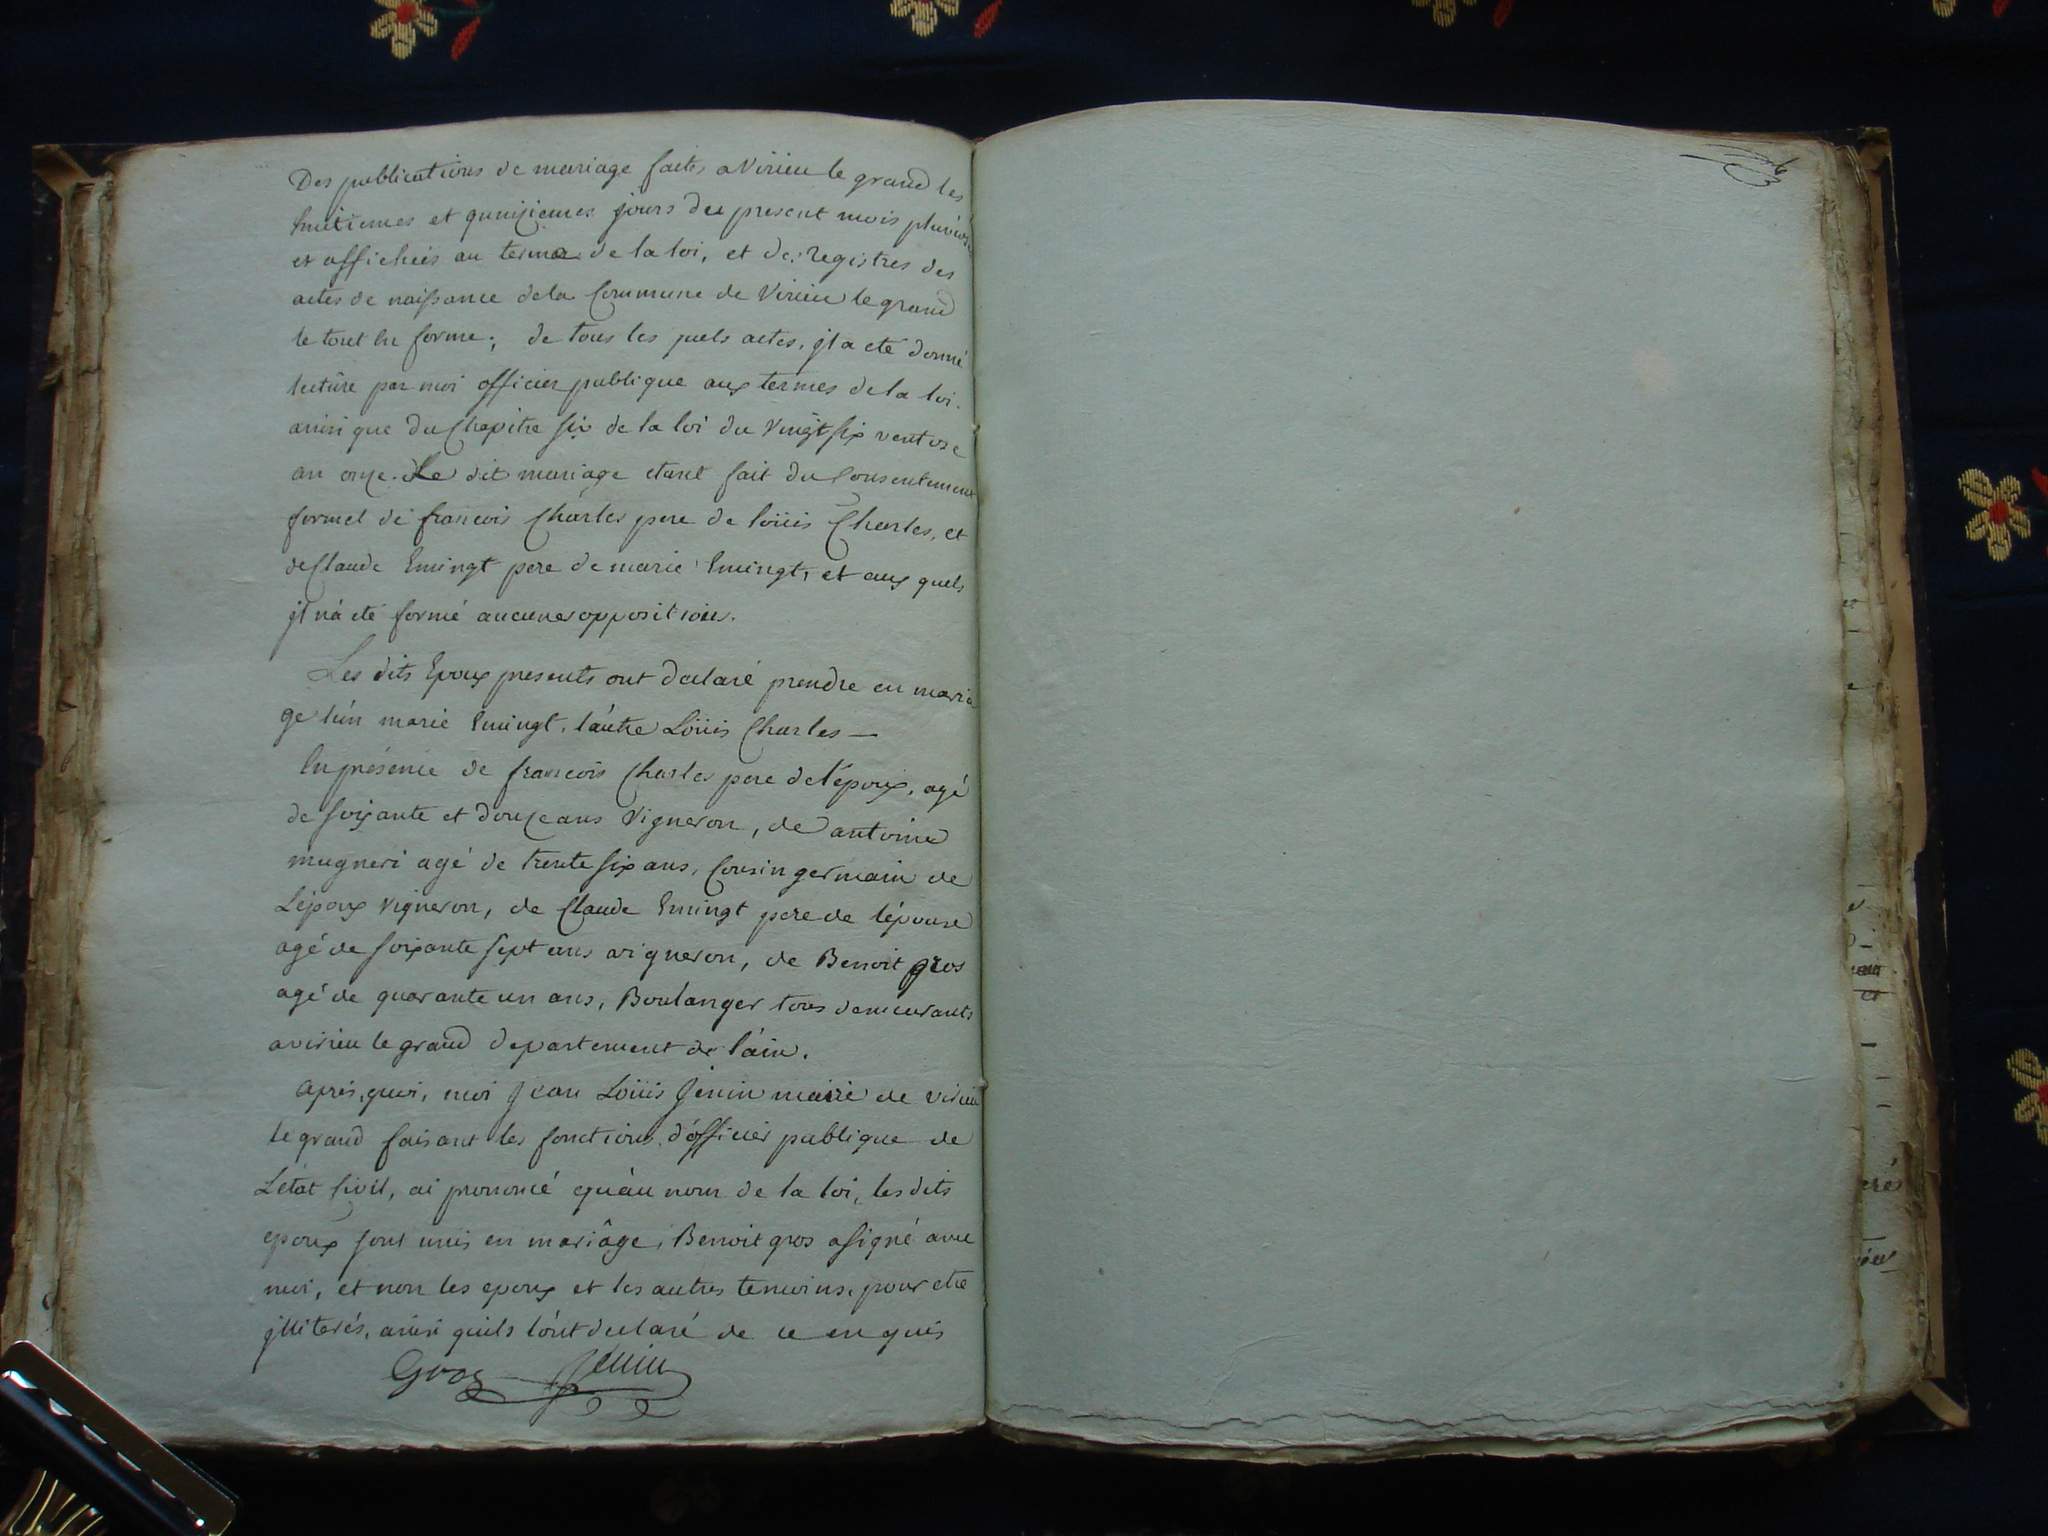 Des publications de mariage faites a Virieu le grand les
huitiemes et quinziemes jours du present mois pluviose
et affichées au termes de la loi, et des registres des
actes de naissance dela Commune de Virieu le grand
le tout en forme; de tous les quels actes, jl a eté donné
lecture par moi officier publique aux termes de la loi.
ainsi que du Chapitre six de la loi du vingt six ventose
an onze. Le dit mariage etant fait du Consentement
formel de francois Charles pere de loüis Charles, et
de Claude Emingt pere de marie Emingt, et aux quels
jl n'a eté formé aucunes oppositions.
Les dits Epoux presents ont declaré prendre en maria
ge l'un marie Emingt, l'autre Loüis Charles —
En présence de francois Charles pere de l'époux, agé
de soixante et douze ans vigneron, de antoine
mugneri agé de trente six ans, Cousin germain de
L'époux vigneron, de Claude Emingt pere de l'épouse
agé de soixante sept ans vigneron, de Benoit gros
agé de quarante un ans, Boulanger tous demeurants
a virieu le grand departement de l'ain.
après quoi, moi Jean Loüis Jenin maire de virieu
le grand faisant les fonctions d'officier publique de
L'état Civil, ai prononcé qu'au nom de la loi, les dits
epoux sont unis en mariâge, Benoit gros a signé avec
moi, et non les epoux et les autres temoins, pour etre
jlliterés, ainsi quils l'ont declaré de ce enquis
Gros Jenin